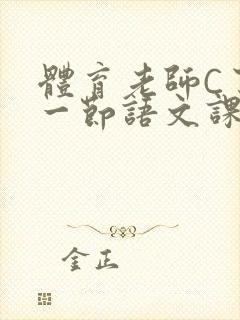 體育老師C
一節語文課
金正